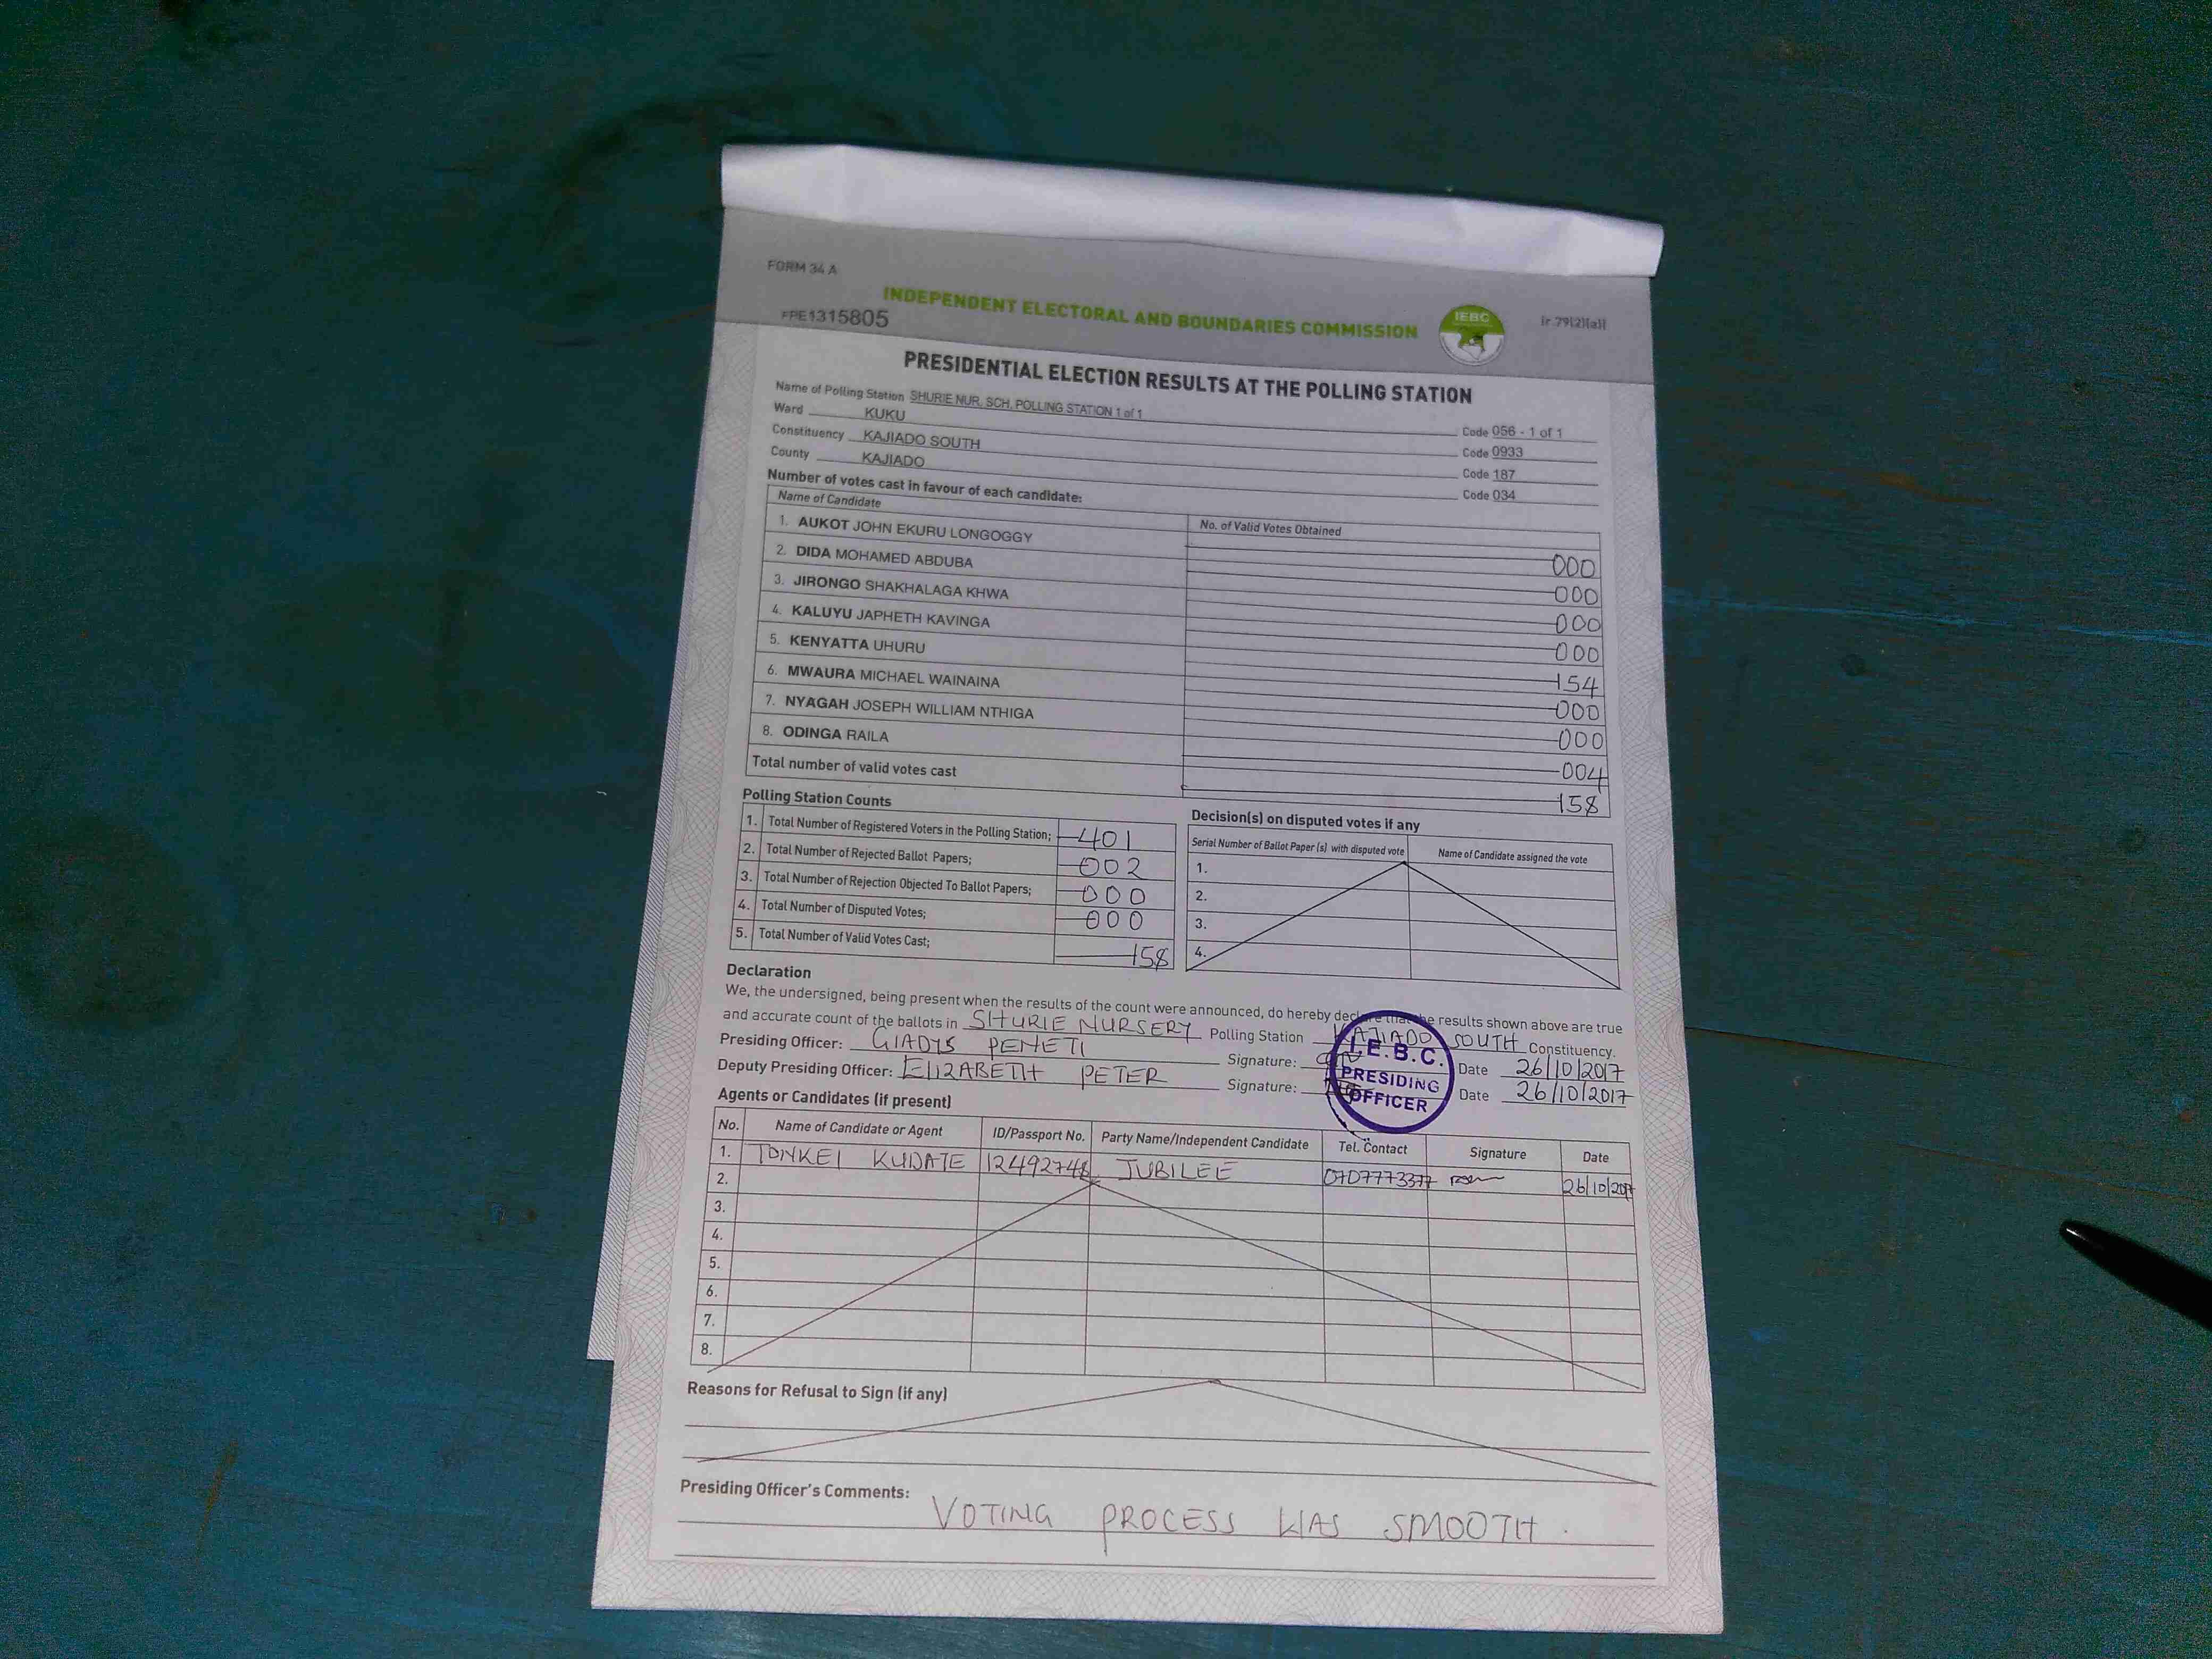 FORM 34 A
INDEPENDENT ELECTORAL AND BOUNDARIES COMMISSION
IEBC
(r.79(2)(a))
FPE1315805
PRESIDENTIAL ELECTION RESULTS AT THE POLLING STATION
Name of Polling Station SHURIE NUR. SCH. POLLING STATION 1 of 1 Code 056 - 1 of 1
Ward KUKU Code 0933
Constituency KAJIADO SOUTH Code 187
County KAJIADO Code 034
Number of votes cast in favour of each candidate:
Name of Candidate No. of Valid Votes Obtained
1. AUKOT JOHN EKURU LONGOGGY 000
2. DIDA MOHAMED ABDUBA 000
3. JIRONGO SHAKHALAGA KHWA 000
4. KALUYU JAPHETH KAVINGA 000
5. KENYATTA UHURU 154
6. MWAURA MICHAEL WAINAINA 000
7. NYAGAH JOSEPH WILLIAM NTHIGA 000
8. ODINGA RAILA 004
Total number of valid votes cast 158
Polling Station Counts
1. Total Number of Registered Voters in the Polling Station; 401
2. Total Number of Rejected Ballot Papers; 002
3. Total Number of Rejection Objected To Ballot Papers; 000
4. Total Number of Disputed Votes; 000
5. Total Number of Valid Votes Cast; 158
Decision(s) on disputed votes if any
Serial Number of Ballot Paper (s) with disputed vote Name of Candidate assigned the vote
1.
2.
3.
4.
Declaration
We, the undersigned, being present when the results of the count were announced, do hereby declare that the results shown above are true
and accurate count of the ballots in SHURIE NURSERY Polling Station KAJIADO SOUTH Constituency.
Presiding Officer: GLADYS PENETI Signature: Date 26/10/2017
Deputy Presiding Officer: ELIZABETH PETER Signature: Date 26/10/2017
I.E.B.C.
PRESIDING
OFFICER
Agents or Candidates (if present)
No. Name of Candidate or Agent ID/Passport No. Party Name/Independent Candidate Tel. Contact Signature Date
1. TONKEI KUDATE 12492748 JUBILEE 0707773377 26/10/2017
2.
3.
4.
5.
6.
7.
8.
Reasons for Refusal to Sign (if any)
Presiding Officer's Comments:
VOTING PROCESS WAS SMOOTH.